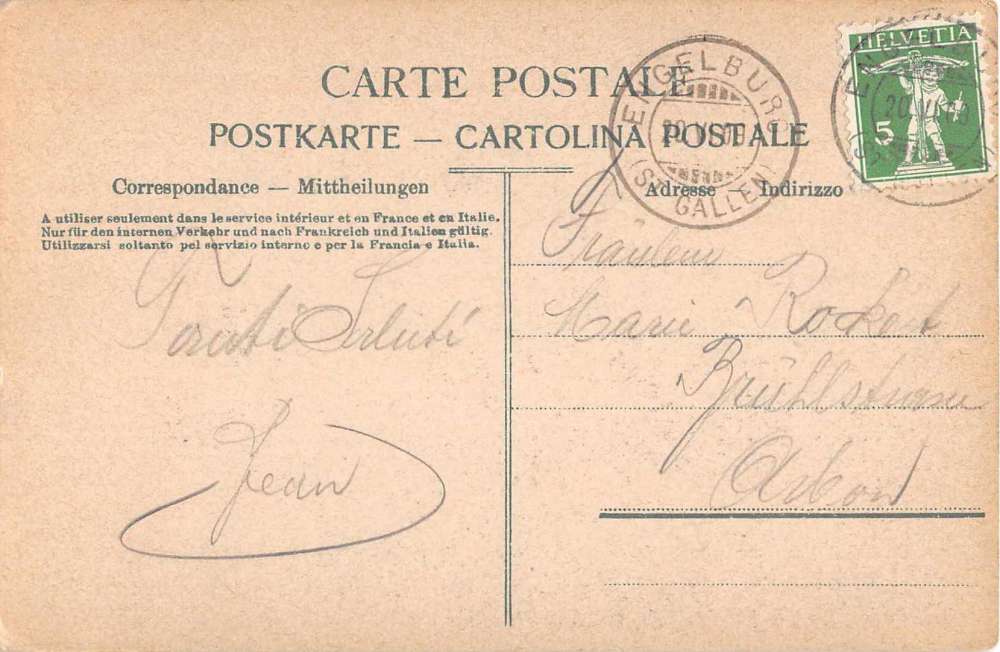 CARTE POSTALE
POSTKARTE — CARTOLINA POSTALE
HELVETIA
5
ENGELBURG
(ST. GALLEN)
Correspondance — Mittheilungen
A utiliser seulement dans le service intérieur et en France et en Italie.
Nur für den internen Verkehr und nach Frankreich und Italien gültig.
Utilizzarsi soltanto pel servizio interno e per la Francia e Italia.
Saluti
Jean
Adresse Indirizzo
Fräulein
Marie
Arbon